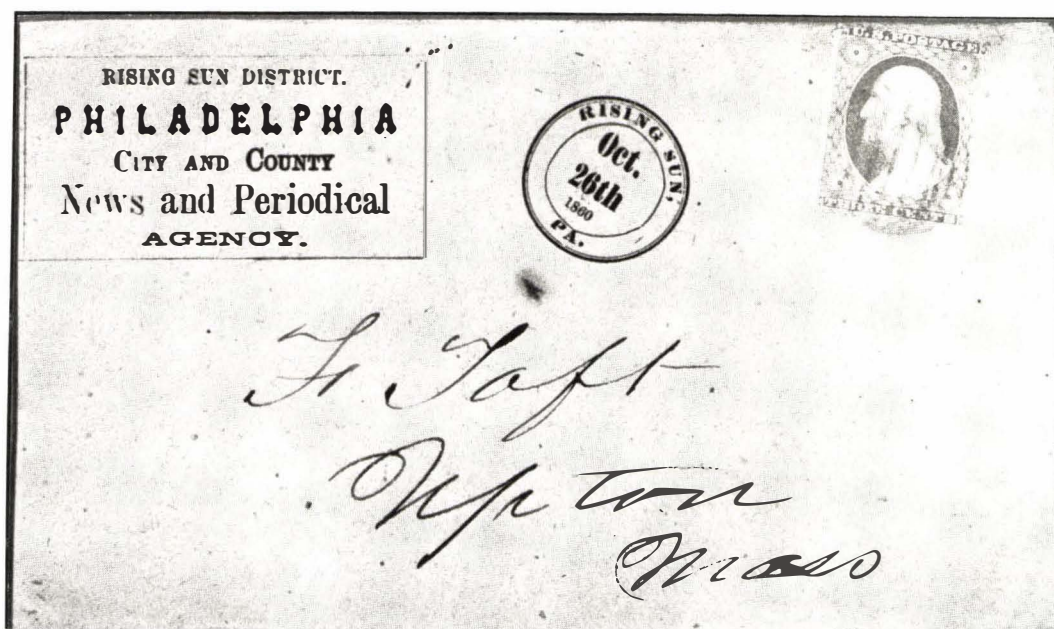 RISING SUN DISTRICT.
PHILADELPHIA
CITY AND COUNTY
News and Periodical
AGENCY.
RISING SUN,
Oct.
26th
1860
PA.
U.S. POSTAGE
THREE CENTS
F. Taft.
Upton
Mass